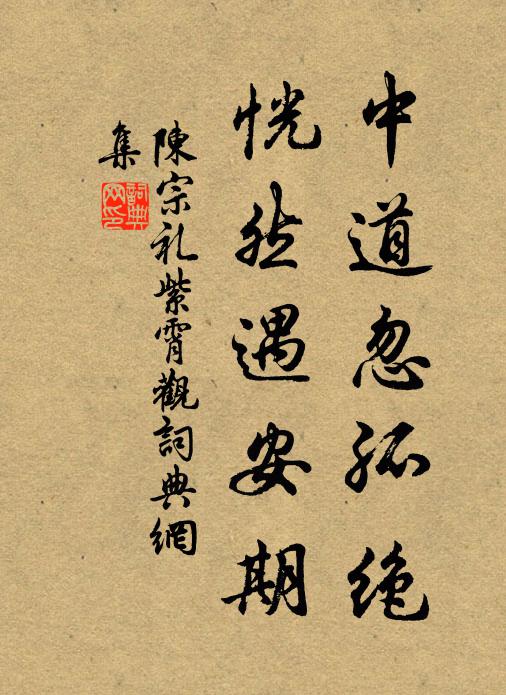 中道忽孤绝
恍然遇安期
陳宗礼紫霄觀詞典網
集
詞典网印